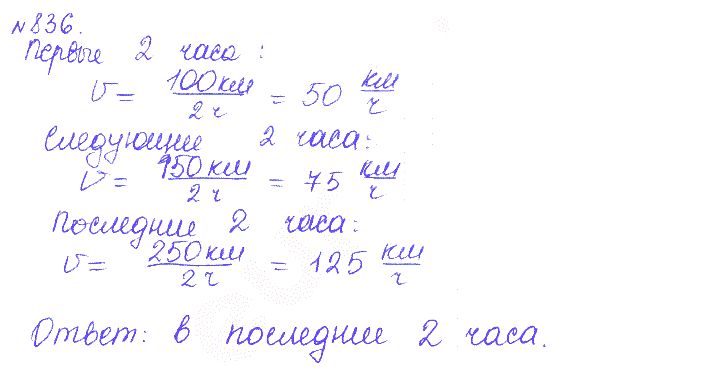 №836.
Первые 2 часа:
V = 100км / 2ч = 50 км/ч
Следующие 2 часа:
V = 150км / 2ч = 75 км/ч
Последние 2 часа:
V = 250км / 2ч = 125 км/ч
Ответ: в последние 2 часа.